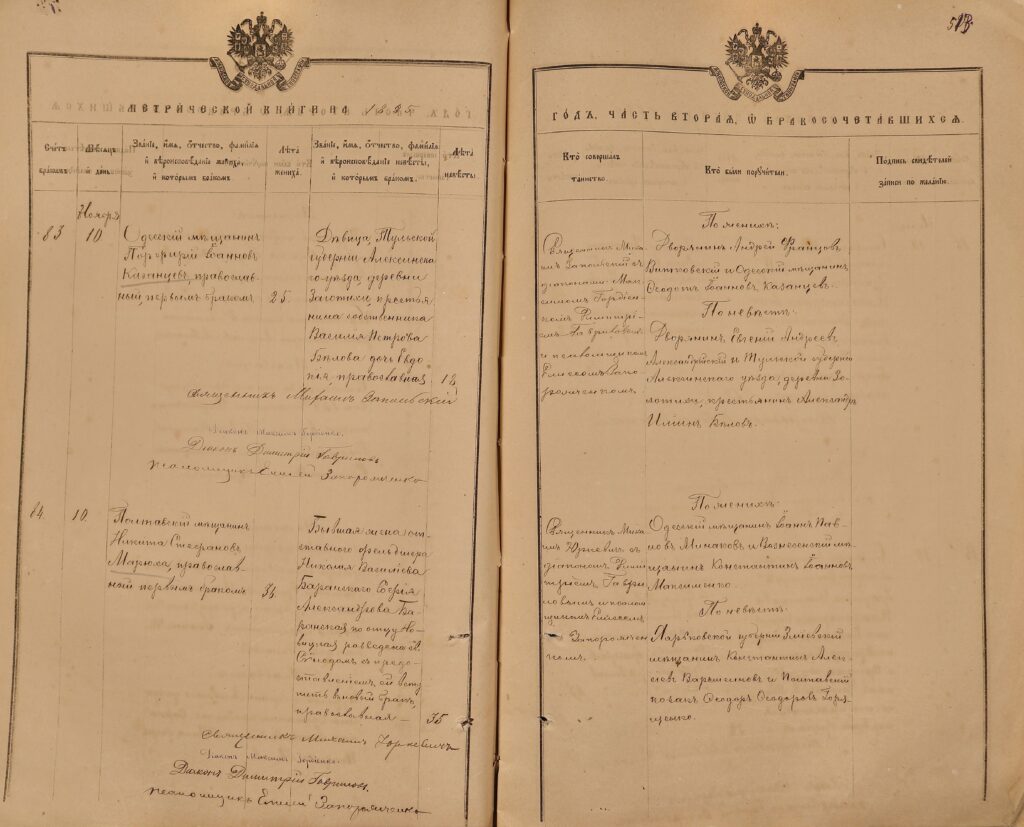 МЕТРИЧЕСКОЙ КНИГИ НА 1895
Счетъ браковъ.
Мѣсяцъ и день.
Званіе, имя, отчество, фамилія
и вѣроисповѣданіе жениха,
и которымъ бракомъ.
Лѣта жениха.
Званіе, имя, отчество, фамилія
и вѣроисповѣданіе невѣсты,
и которымъ бракомъ.
Лѣта невѣсты.
Ноября
83
10
Одесскій мѣщанинъ
Порфирій Іоанновъ
Казанцевъ, православ-
ный, первымъ бракомъ
25.
Дѣвица, Тульской
губерніи Алексинска-
го уѣзда, деревни
крестья-
нина собственника
Василія Петрова
Бѣлова дочь Евдо-
кія, православная.
18
Священникъ Михаилъ
Діаконъ Максимъ
Діаконъ Димитрій Гавриловъ
Псаломщикъ Елисей Запорожченко
84.
10.
Полтавскій мѣщанинъ
Никита Стефановъ
Марюха, православ-
ный первымъ бракомъ
34.
Бывшая жена от-
ставного фельдшера
Николая Васильева
Баранскаго Софія
Александрова Ба-
ранская по отцу Но-
вицкая разведена Св.
Сѵнодомъ съ предо-
ставленіемъ ей всту-
пить въ новый бракъ,
православная
35
Священникъ Михаилъ Юркевичъ
Діаконъ Максимъ
Діаконъ Димитрій Гавриловъ.
Псаломщикъ Елисей Запорожченко
513.
ГОДЪ, ЧАСТЬ ВТОРАЯ, О БРАКОСОЧЕТАВШИХСЯ.
Кто совершалъ таинство.
Кто были поручители.
Подпись свидѣтелей записи по желанію.
Священникъ Миха-
илъ съ
діаконами Мак-
симомъ Гордіен-
комъ Димитрі-
емъ Гавриловымъ
и псаломщикомъ
Елисеемъ Запо-
рожченкомъ.
По женихѣ:
Дворянинъ Андрей Францовъ
Витковскій и Одесскій мѣщанинъ
Ѳеодотъ Іоанновъ Казанцевъ.
По невѣстѣ:
Дворянинъ Евгеній Андреевъ
и Тульской губерніи
Алексинскаго уѣзда, деревни
крестьянинъ Александръ
Бѣловъ.
Священникъ Миха-
илъ Юркевичъ съ
діакономъ Дими-
тріемъ Гаври-
ловымъ и псалом-
щикомъ Елисеемъ
Запорожчен-
комъ.
По женихѣ:
Одесскій мѣщанинъ Іоаннъ Пав-
ловъ Минаковъ и Вознесенскій мѣ-
щанинъ Константинъ Іоанновъ
Максименко.
По невѣстѣ:
Харьковской губерніи Зміевскій
мѣщанинъ Константинъ Алек-
сѣевъ и Полтавскій
козакъ Ѳеодоръ Ѳеодоровъ Горя-
щенко.